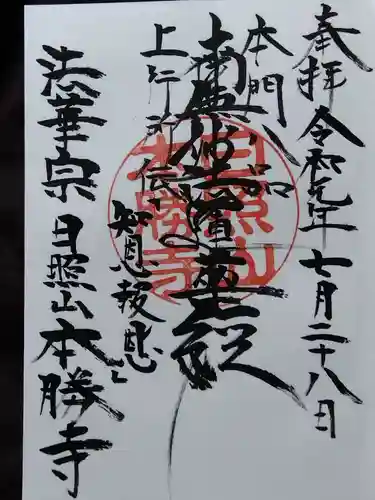 奉拝 令和元年七月二十八日
本門八品
上行所伝
南無妙法蓮華経
知恩報恩
法華宗 日照山 本勝寺
日照山
本勝寺